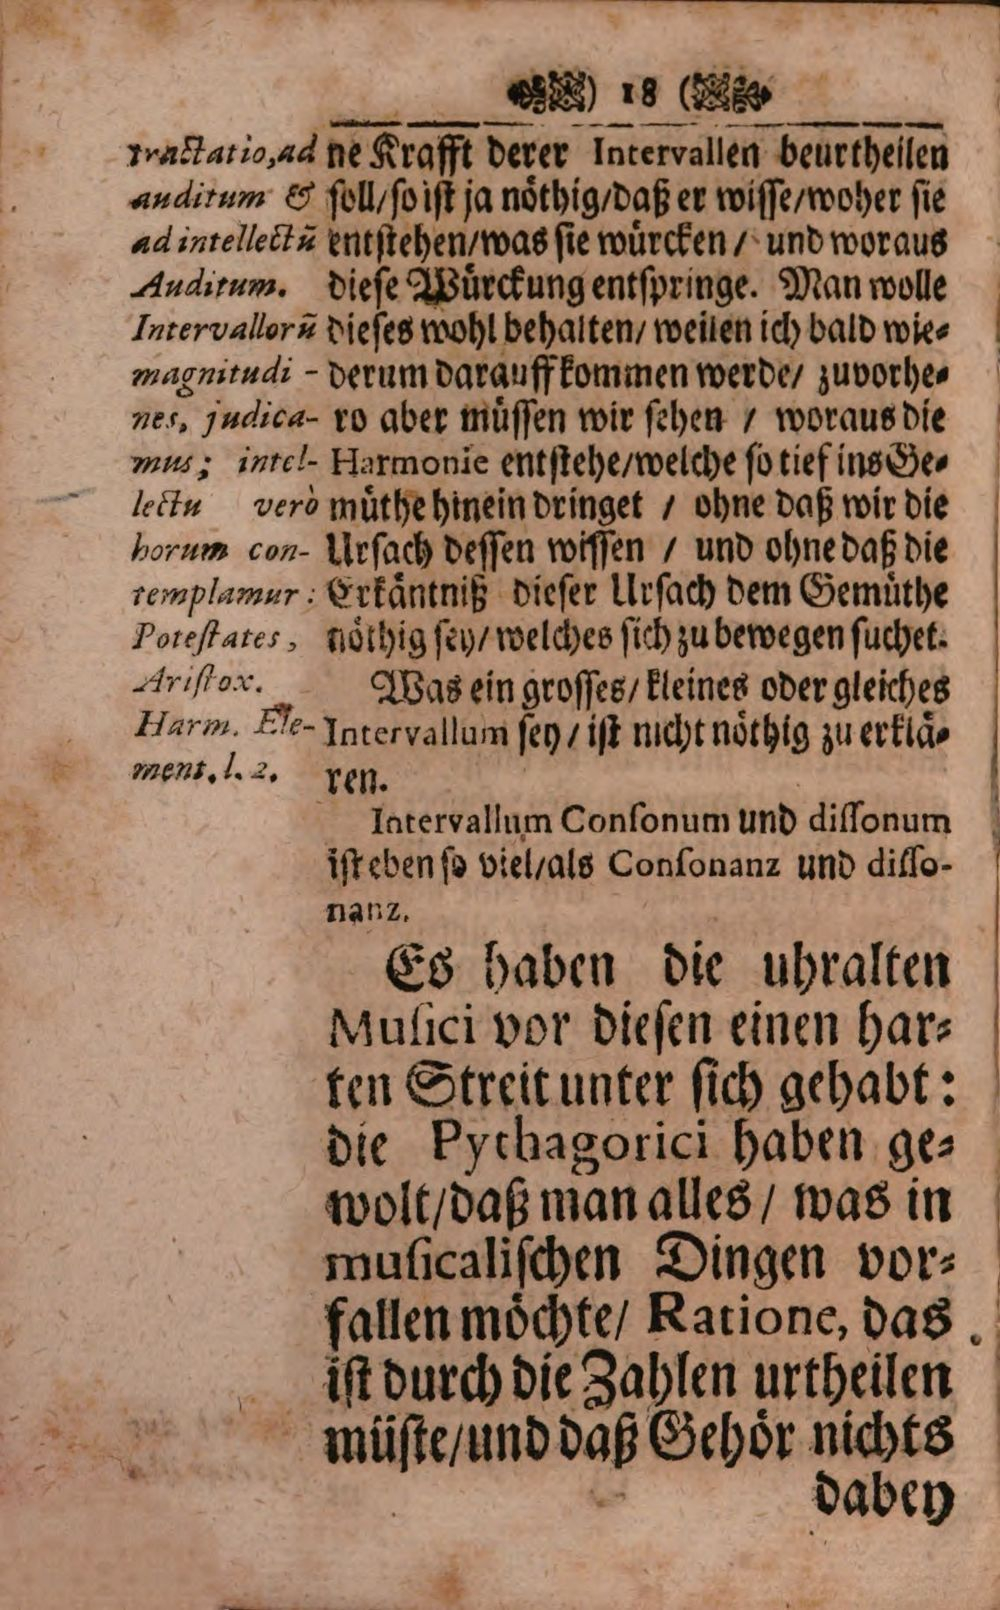 ) 18 (
tractatio, ad
auditum &
ad intellectũ
Auditum.
Intervallorũ
magnitudi-
nes, judica-
mus; intel-
lectu verò
horum con-
templamur:
Potestates,
Aristox.
Harm. Ele-
ment. l. 2.
ne Krafft derer Intervallen beurtheilen
soll/so ist ja nöthig/daß er wisse/woher sie
entstehen/was sie würcken / und woraus
diese Würckung entspringe. Man wolle
dieses wohl behalten/ weilen ich bald wie-
derum darauff kommen werde/ zuvorhe-
ro aber müssen wir sehen / woraus die
Harmonie entstehe/welche so tief ins Ge-
müthe hinein dringet / ohne daß wir die
Ursach dessen wissen / und ohne daß die
Erkäntniß dieser Ursach dem Gemüthe
nöthig sey/ welches sich zu bewegen suchet.
Was ein grosses/ kleines oder gleiches
Intervallum sey / ist nicht nöthig zu erklä-
ren.
Intervallum Consonum und dissonum
ist eben so viel/als Consonanz und disso-
nanz.
Es haben die uhralten
Musici vor diesen einen har-
ten Streit unter sich gehabt:
die Pythagorici haben ge-
wolt/daß man alles / was in
musicalischen Dingen vor-
fallen möchte/ Ratione, das
ist durch die Zahlen urtheilen
müste/und daß Gehör nichts
dabey